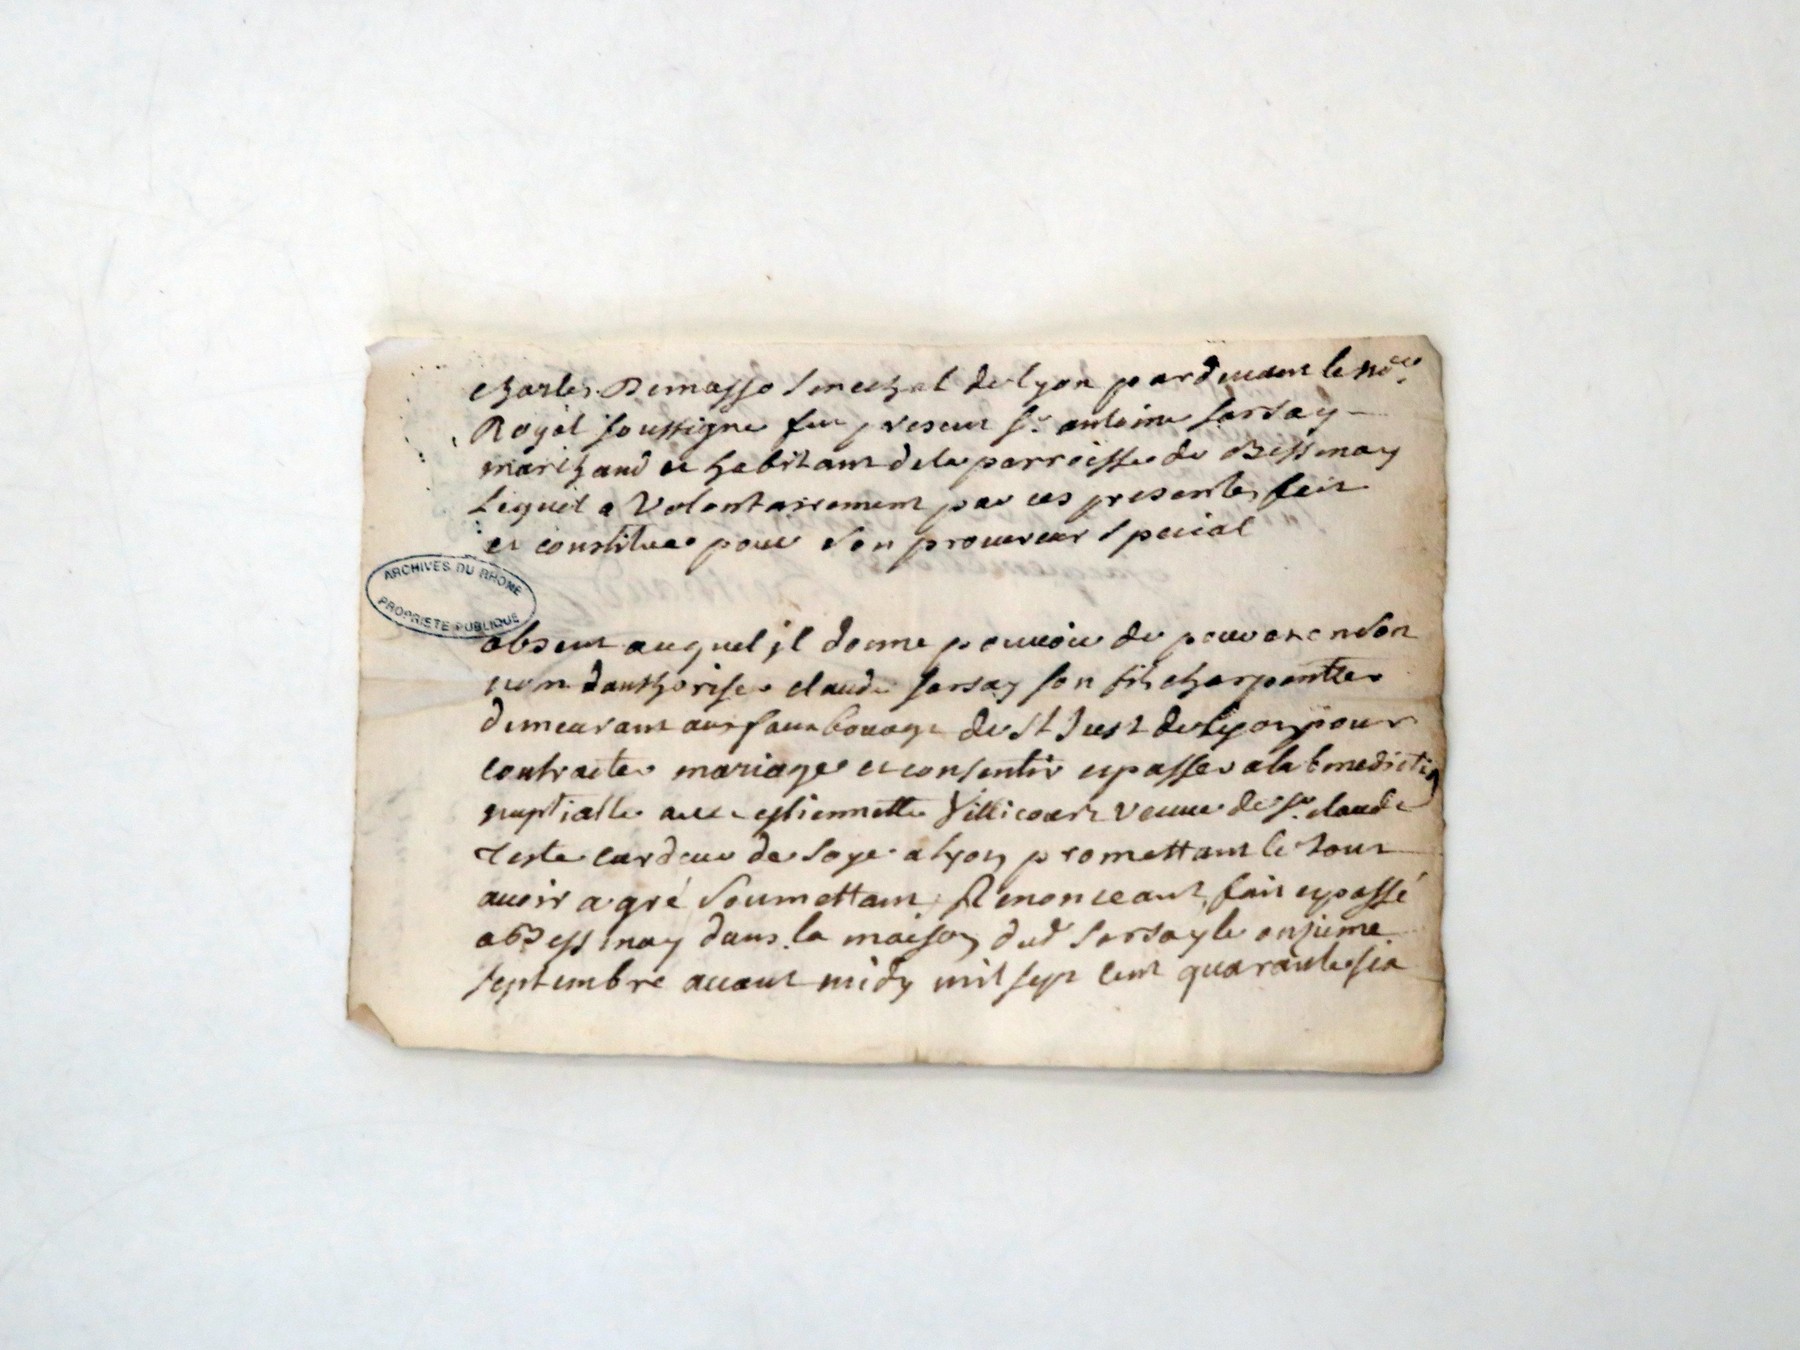 charles Demasso Senechal de lyon pardevant le no.re
Royal soussigné fut present Sr. antoine sarsay
marchand et habitant dela parroisse de Bessenay
Lequel a Volontairement par ces presentes fait
et constitue pour Son procureur Special
ARCHIVES DU RHONE
PROPRIETE PUBLIQUE
absent auquel jl donne pouvoir de pour et en Son
nom dauthoriser claude sarsay son fils charpentier
demeurant aux fauxbourgs de St Just de lyon pour
contracter mariage et consentir espasser a la benediction
nuptialle avec estiennette Villicour veuve de Sr. claude
Teste cardeur de soye a lyon promettant le tout
avoir a gré Soumettant Renonceant, fait et passé
a Bessenay dans la maison dud sarsay le onzieme
septembre avant midy mil sept cent quarante six